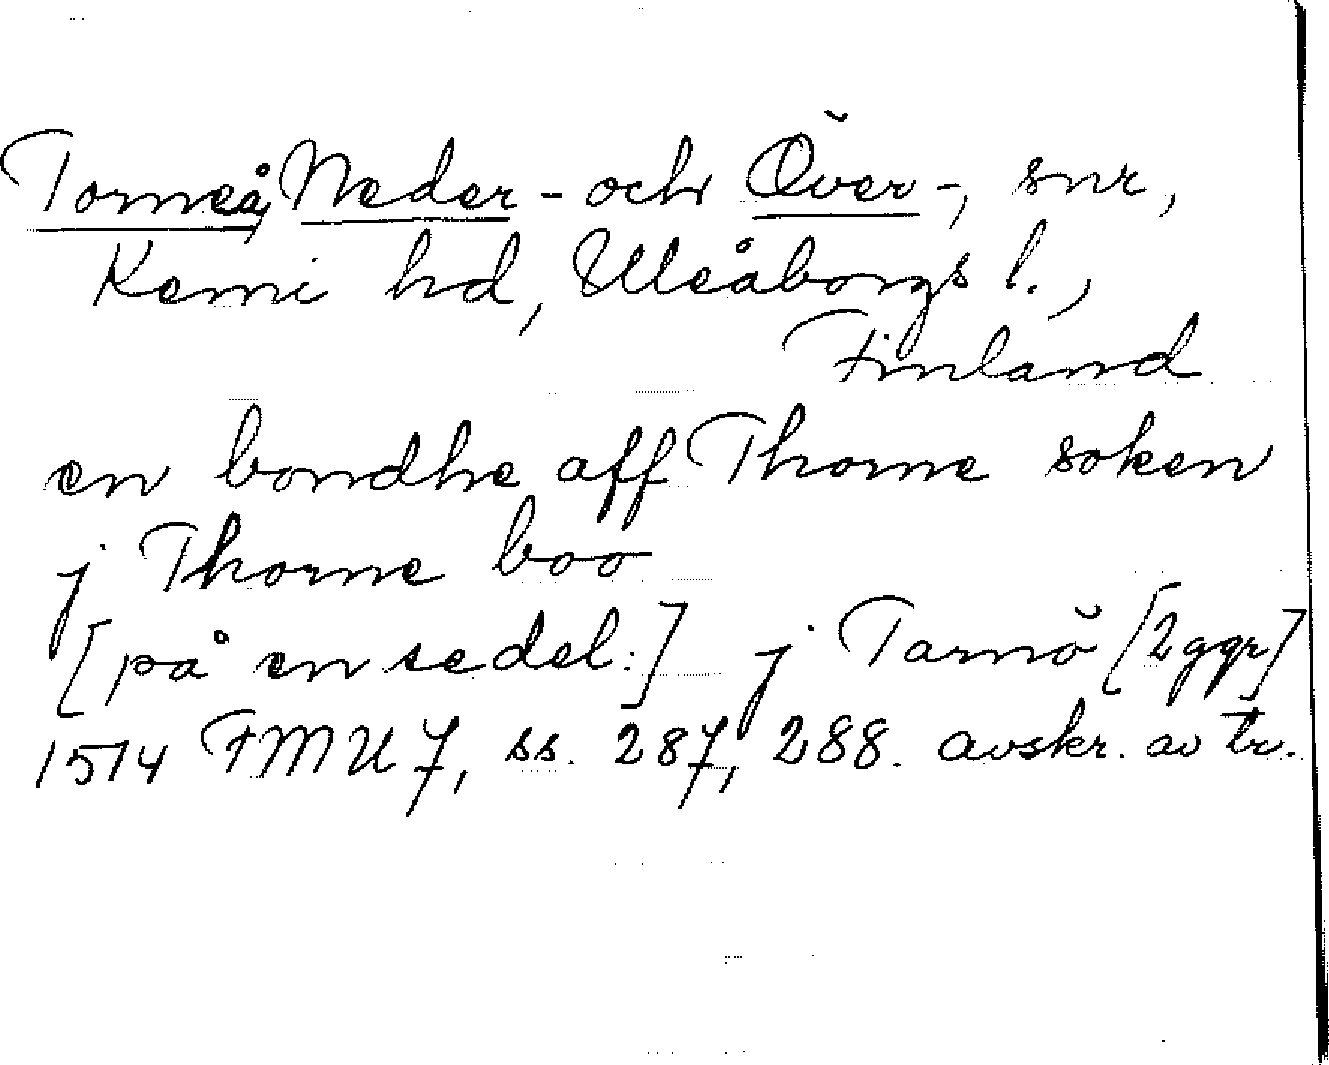 Torneå, Neder- och Över-, snr,
Kemi hd, Uleåborgs l.,
Finland
en bondhe aff Thorne soken
j Thorne boo
[på en sedel:] j Tornö [2 ggr]
1514 FMU 7, ss. 287, 288. avskr. av tr.